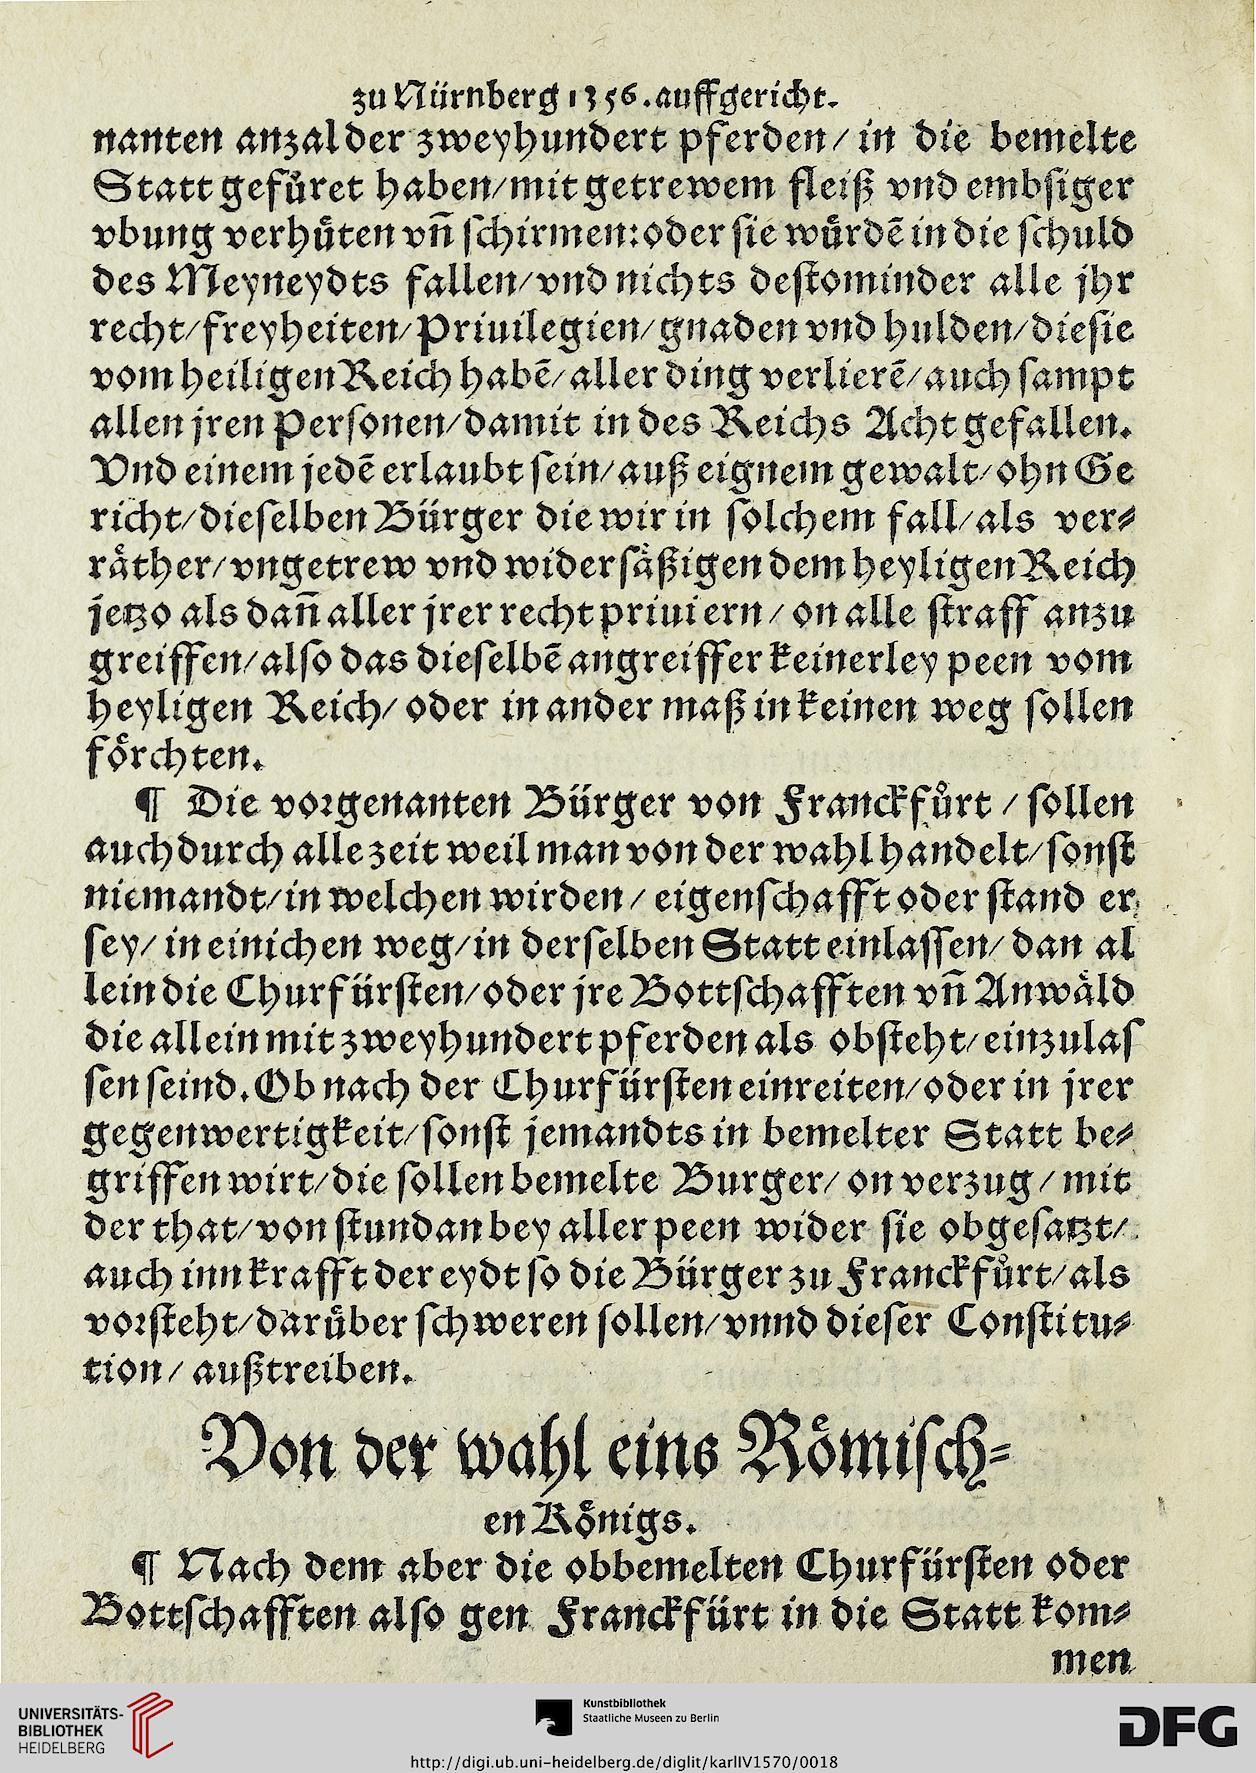 zu Nürnberg 1356. auffgericht.
nanten anzal der zweyhundert pferden/ in die bemelte
Statt gefuͤret haben/ mit getrewem fleiß vnd embsiger
vbung verhuͤten vn̄ schirmen: oder sie wuͤrdē in die schuld
des Meyneydts fallen/ vnd nichts destominder alle jhr
recht/ freyheiten/ Priuilegien/ gnaden vnd hulden/ die sie
vom heiligen Reich habē/ aller ding verlierē/ auch sampt
allen jren Personen/ damit in des Reichs Acht gefallen.
Vnd einem jedē erlaubt sein/ auß eignem gewalt/ ohn Ge
richt/ dieselben Bürger die wir in solchem fall/ als ver⸗
raͤther/ vngetrew vnd widersaͤßigen dem heyligen Reich
jetzo als dan̄ aller jrer recht priuiern/ on alle straff anzu
greiffen/ also das dieselbē angreiffer keinerley peen vom
heyligen Reich/ oder in ander maß in keinen weg sollen
foͤrchten.
¶ Die vorgenanten Bürger von Franckfuͤrt / sollen
auch durch alle zeit weil man von der wahl handelt/ sonst
niemandt/ in welchen wirden / eigenschafft oder stand er
sey/ in einichen weg/ in derselben Statt einlassen/ dan al
lein die Churfürsten/ oder jre Bottschafften vn̄ Anwaͤld
die allein mit zweyhundert pferden als obsteht/ einzulas
sen seind. Ob nach der Churfürsten einreiten/ oder in jrer
gegenwertigkeit/ sonst jemandts in bemelter Statt be⸗
griffen wirt/ die sollen bemelte Burger/ on verzug / mit
der that/ von stund an bey aller peen wider sie obgesatzt/
auch inn krafft der eydt so die Bürger zu Franckfuͤrt/ als
vorsteht/ daruͤber schweren sollen/ vnnd dieser Constitu⸗
tion / außtreiben.
Von der wahl eins Roͤmisch⸗
en Koͤnigs.
¶ Nach dem aber die obbemelten Churfürsten oder
Bottschafften also gen Franckfürt in die Statt kom⸗
men
UNIVERSITÄTS-
BIBLIOTHEK
HEIDELBERG
Kunstbibliothek
Staatliche Museen zu Berlin
DFG
http://digi.ub.uni-heidelberg.de/diglit/karlIV1570/0018